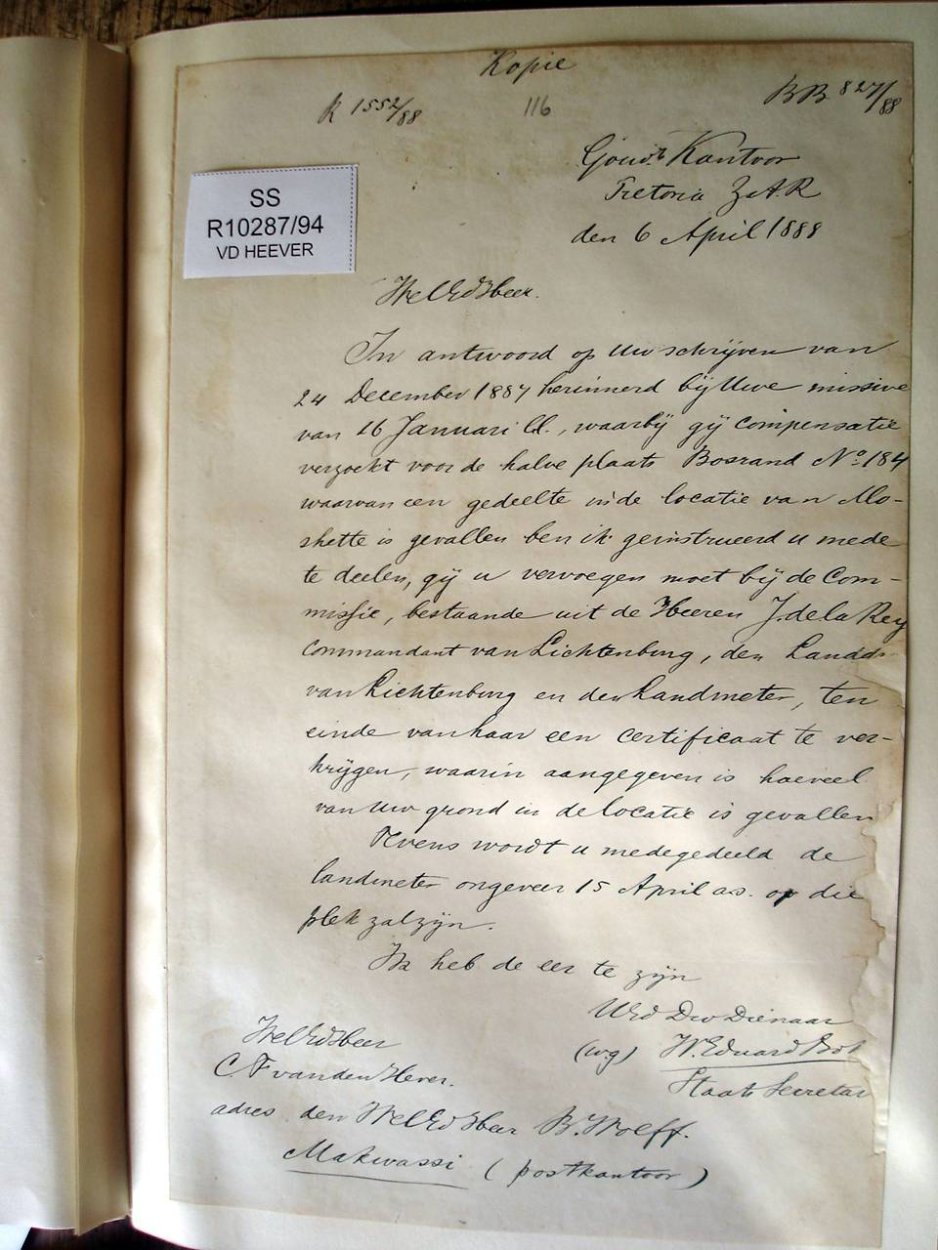 Kopie
R 1552/88
116
BB 827/88
Gouvts Kantoor
Pretoria Z.A.R
den 6 April 1888
SS
R10287/94
VD HEEVER
WelEdHeer.
In antwoord op Uw schrijven van
24 December 1887 herinnerd bij Uwe missive
van 16 Januari ll., waarbij gij compensatie
verzoekt voor de halve plaats Bosrand No 184
waarvan een gedeelte in de locatie van Mo-
shette is gevallen ben ik geinstrueerd u mede
te deelen, gij u vervoegen moet bij de Com-
missie, bestaande uit de Heeren J. de la Rey
Commandant van Lichtenburg, den Landd
van Lichtenburg en den Landmeter, ten
einde van haar een certificaat te ver-
krijgen, waarin aangegeven is hoeveel
van Uw grond in de locatie is gevallen
Tevens wordt u medegedeeld de
landmeter ongeveer 15 April a.s. op die
plek zal zijn.
Ik heb de eer te zijn
UEd Dw Dienaar
(w.g) W. Eduard Bok
Staats Secretar
WelEdHeer
C. F van den Hever.
adres den WelEdHeer B. Wolff.
Makwassi (postkantoor)